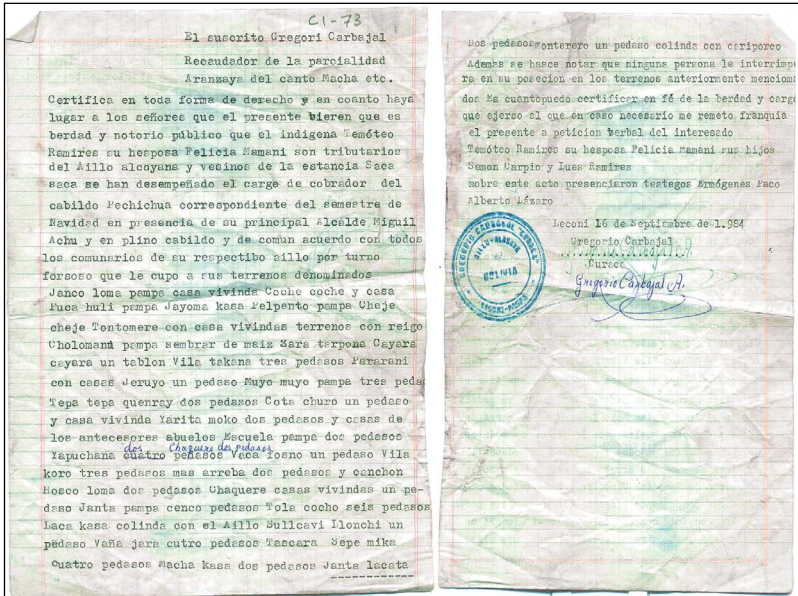 C1-73
El suscrito Gregori Carbajal
Recaudador de la parcialidad
Aranzaya del canto Macha etc.
Certifica en toda forma de derecho y en coanto haya
lugar a los señores que el presente bieren que es
berdad y notorio público que el indigena Temóteo
Ramires su hesposa Felicia Mamani son tributarios
del Aillo alcoyana y vesinos de la estancia Saca
saca se han desempeñado el cargo de cobrador del
cabildo Pechichua correspondente del semestre de
Navidad en presencia de su principal Alcalde Miguil
Achu y en plino cabildo y de comun acuerdo con todos
los comunarios de su respectibo aillo por turno
forsoso que le cupo a sus terrenos denominados
Janco loma pampa casa vivinda Coche coche y casa
Puca huli pampa Jayoma kasa Pelpento pampa Cheje
cheje Tentomere con casa vivindas terrenos con reigo
Cholomani pampa sembrar de maiz Sara tarpona Cayara
cayara un tablon Vila takana tres pedasos Pararani
con casas Jeruyo un pedaso Muyo muyo pampa tres peda
Tepa tepa quenray dos pedasos Cota churo un pedaso
y casa vivinda Yarita moko dos pedasos y casas de
los antecesores abuelos Escuela pampa dos pedasos
dos Chaquere dos pedasos
Yapuchana cuatro pedasos Vaca fosno un pedaso Vila
koro tres pedasos mas arreba dos pedasos y canchon
Rosco loma dos pedasos Chaquere casas vivindas un pe-
daso Janta pampa cenco pedasos Tola cocho seis pedasos
Laca kasa colinda con el Aillo Sullcavi Ilonchi un
pedaso Vaña jara cutro pedasos Tascara Sepe mika
cuatro pedasos Macha kasa dos pedasos Janta lacata
Dos pedasos monterero un pedaso colinda con cariporco
Además se hasce notar que ninguna persona le interrimpe
ra en su posecion en los terrenos anteriormente menciona
dos Es cuantopuedo certificar en fé de la berdad y cargo
que ejerso al que en caso necesario me remeto franquia
el presente a peticion berbal del interesado
Temóteo Ramires su hesposa Felicia Mamani sus hijos
Semon Carpio y Lues Ramires
sobre este acto presenciaron testegos Ermógenes Paco
Alberto Lázaro
Leconi 16 de Septiembre de 1.984
Gregorio Carbajal
Curaca
Gregorio Carbajal A.
GREGORIO CARBAJAL "CURACA"
BOLIVIA